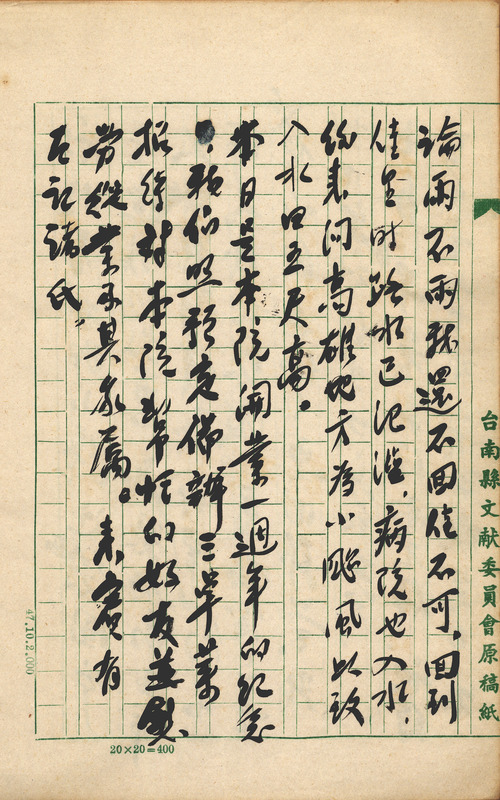 台南縣文献委員會原稿紙
論雨不雨我還不回佳不可，回到
佳里時路水已氾濫，病院也入水，
後来问高雄地方為小颱風以致
入水四五尺高。
本日是本院開業一週年的紀念
，預俻照預定俻辦三卓菜
招待對本院幫忙的好友並慰
勞從業員其家屬。来賓有
石記諸氏，
47.10.2,000
20×20=400